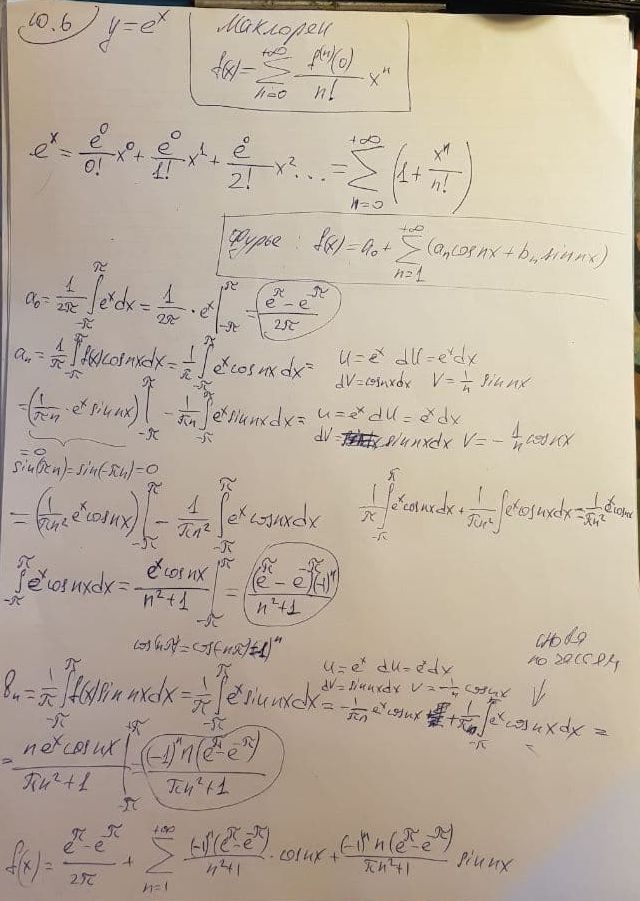 10.6 y = e^x
Маклорен
f(x) = ∑_{n=0}^{+∞} f^{(n)}(0)/n! x^n
e^x = e^0/0! x^0 + e^0/1! x^1 + e^0/2! x^2 ... = ∑_{n=0}^{+∞} (1 + x^n/n!)
Фурье : f(x) = a_0 + ∑_{n=1}^{+∞} (a_n cos nx + b_n sin nx)
a_0 = 1/2π ∫_{-π}^{π} e^x dx = 1/2π · e^x |_{-π}^{π} = (e^π - e^{-π})/2π
a_n = 1/π ∫_{-π}^{π} f(x) cos nx dx = 1/π ∫_{-π}^{π} e^x cos nx dx = u = e^x du = e^x dx
dV = cos nx dx V = 1/n sin nx
= (1/πn · e^x sin nx) |_{-π}^{π} - 1/πn ∫_{-π}^{π} e^x sin nx dx = u = e^x du = e^x dx
dV = sin nx dx V = - 1/n cos nx
= 0
sin(πn) = sin(-πn) = 0
= (1/πn² e^x cos nx) |_{-π}^{π} - 1/πn² ∫_{-π}^{π} e^x cos nx dx
1/π ∫_{-π}^{π} e^x cos nx dx + 1/πn² ∫ e^x cos nx dx = 1/πn² e^x cos nx
∫_{-π}^{π} e^x cos nx dx = e^x cos nx/(n²+1) |_{-π}^{π} = (e^π - e^{-π})(-1)^n/(n²+1)
cos(nπ) = cos(-nπ) = (-1)^n
снова
по частям
b_n = 1/π ∫_{-π}^{π} f(x) sin nx dx = 1/π ∫_{-π}^{π} e^x sin nx dx = u = e^x du = e^x dx
dV = sin nx dx V = - 1/n cos nx
= - 1/πn e^x cos nx + 1/πn ∫_{-π}^{π} e^x cos nx dx =
= n e^x cos nx/(πn²+1) |_{-π}^{+π} = (-1)^n n(e^π - e^{-π})/(πn²+1)
f(x) = (e^π - e^{-π})/2π + ∑_{n=1}^{+∞} (-1)^n (e^π - e^{-π})/(n²+1) · cos nx + (-1)^n n(e^π - e^{-π})/(πn²+1) sin nx